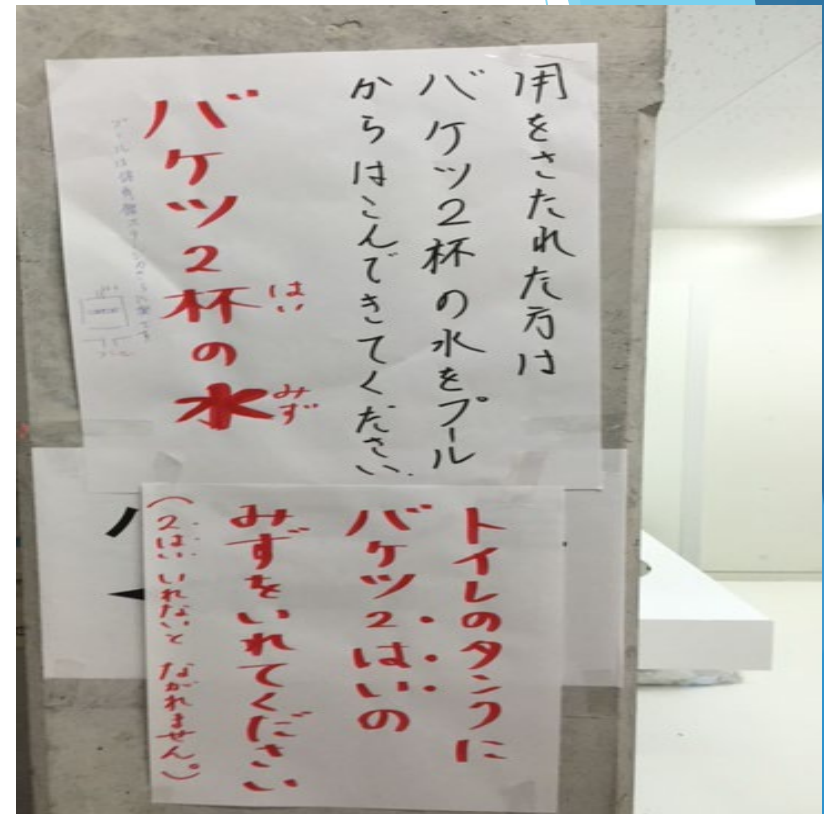 用をさたれた方は
バケツ2杯の水をプール
からはこんできてください.
バケツ2杯の水
はい
みず
プールは体育館
トイレのタンクに
バケツ2はいの
みずをいれてください
(2はいいれないと ながれません。)